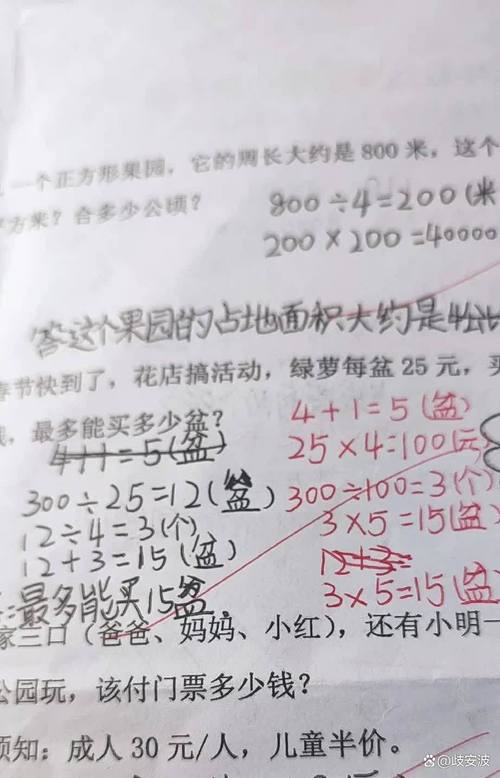 一个正方形果园，它的周长大约是800米，这个
方米？合多少公顷？
800÷4=200(米
200×200=40000
答这个果园的占地面积大约是
春节快到了，花店搞活动，绿萝每盆25元，买
，最多能买多少盆？
4+1=5(盆)
300÷25=12(盆)
12÷4=3(个)
12+3=15(盆)
最多能买15盆.
4+1=5(盆)
25×4=100(元)
300÷100=3(个)
3×5=15(盆)
12+3=
3×5=15(盆)
家三口（爸爸、妈妈、小红），还有小明一
公园玩，该付门票多少钱？
须知：成人30元/人，儿童半价。
岐安波